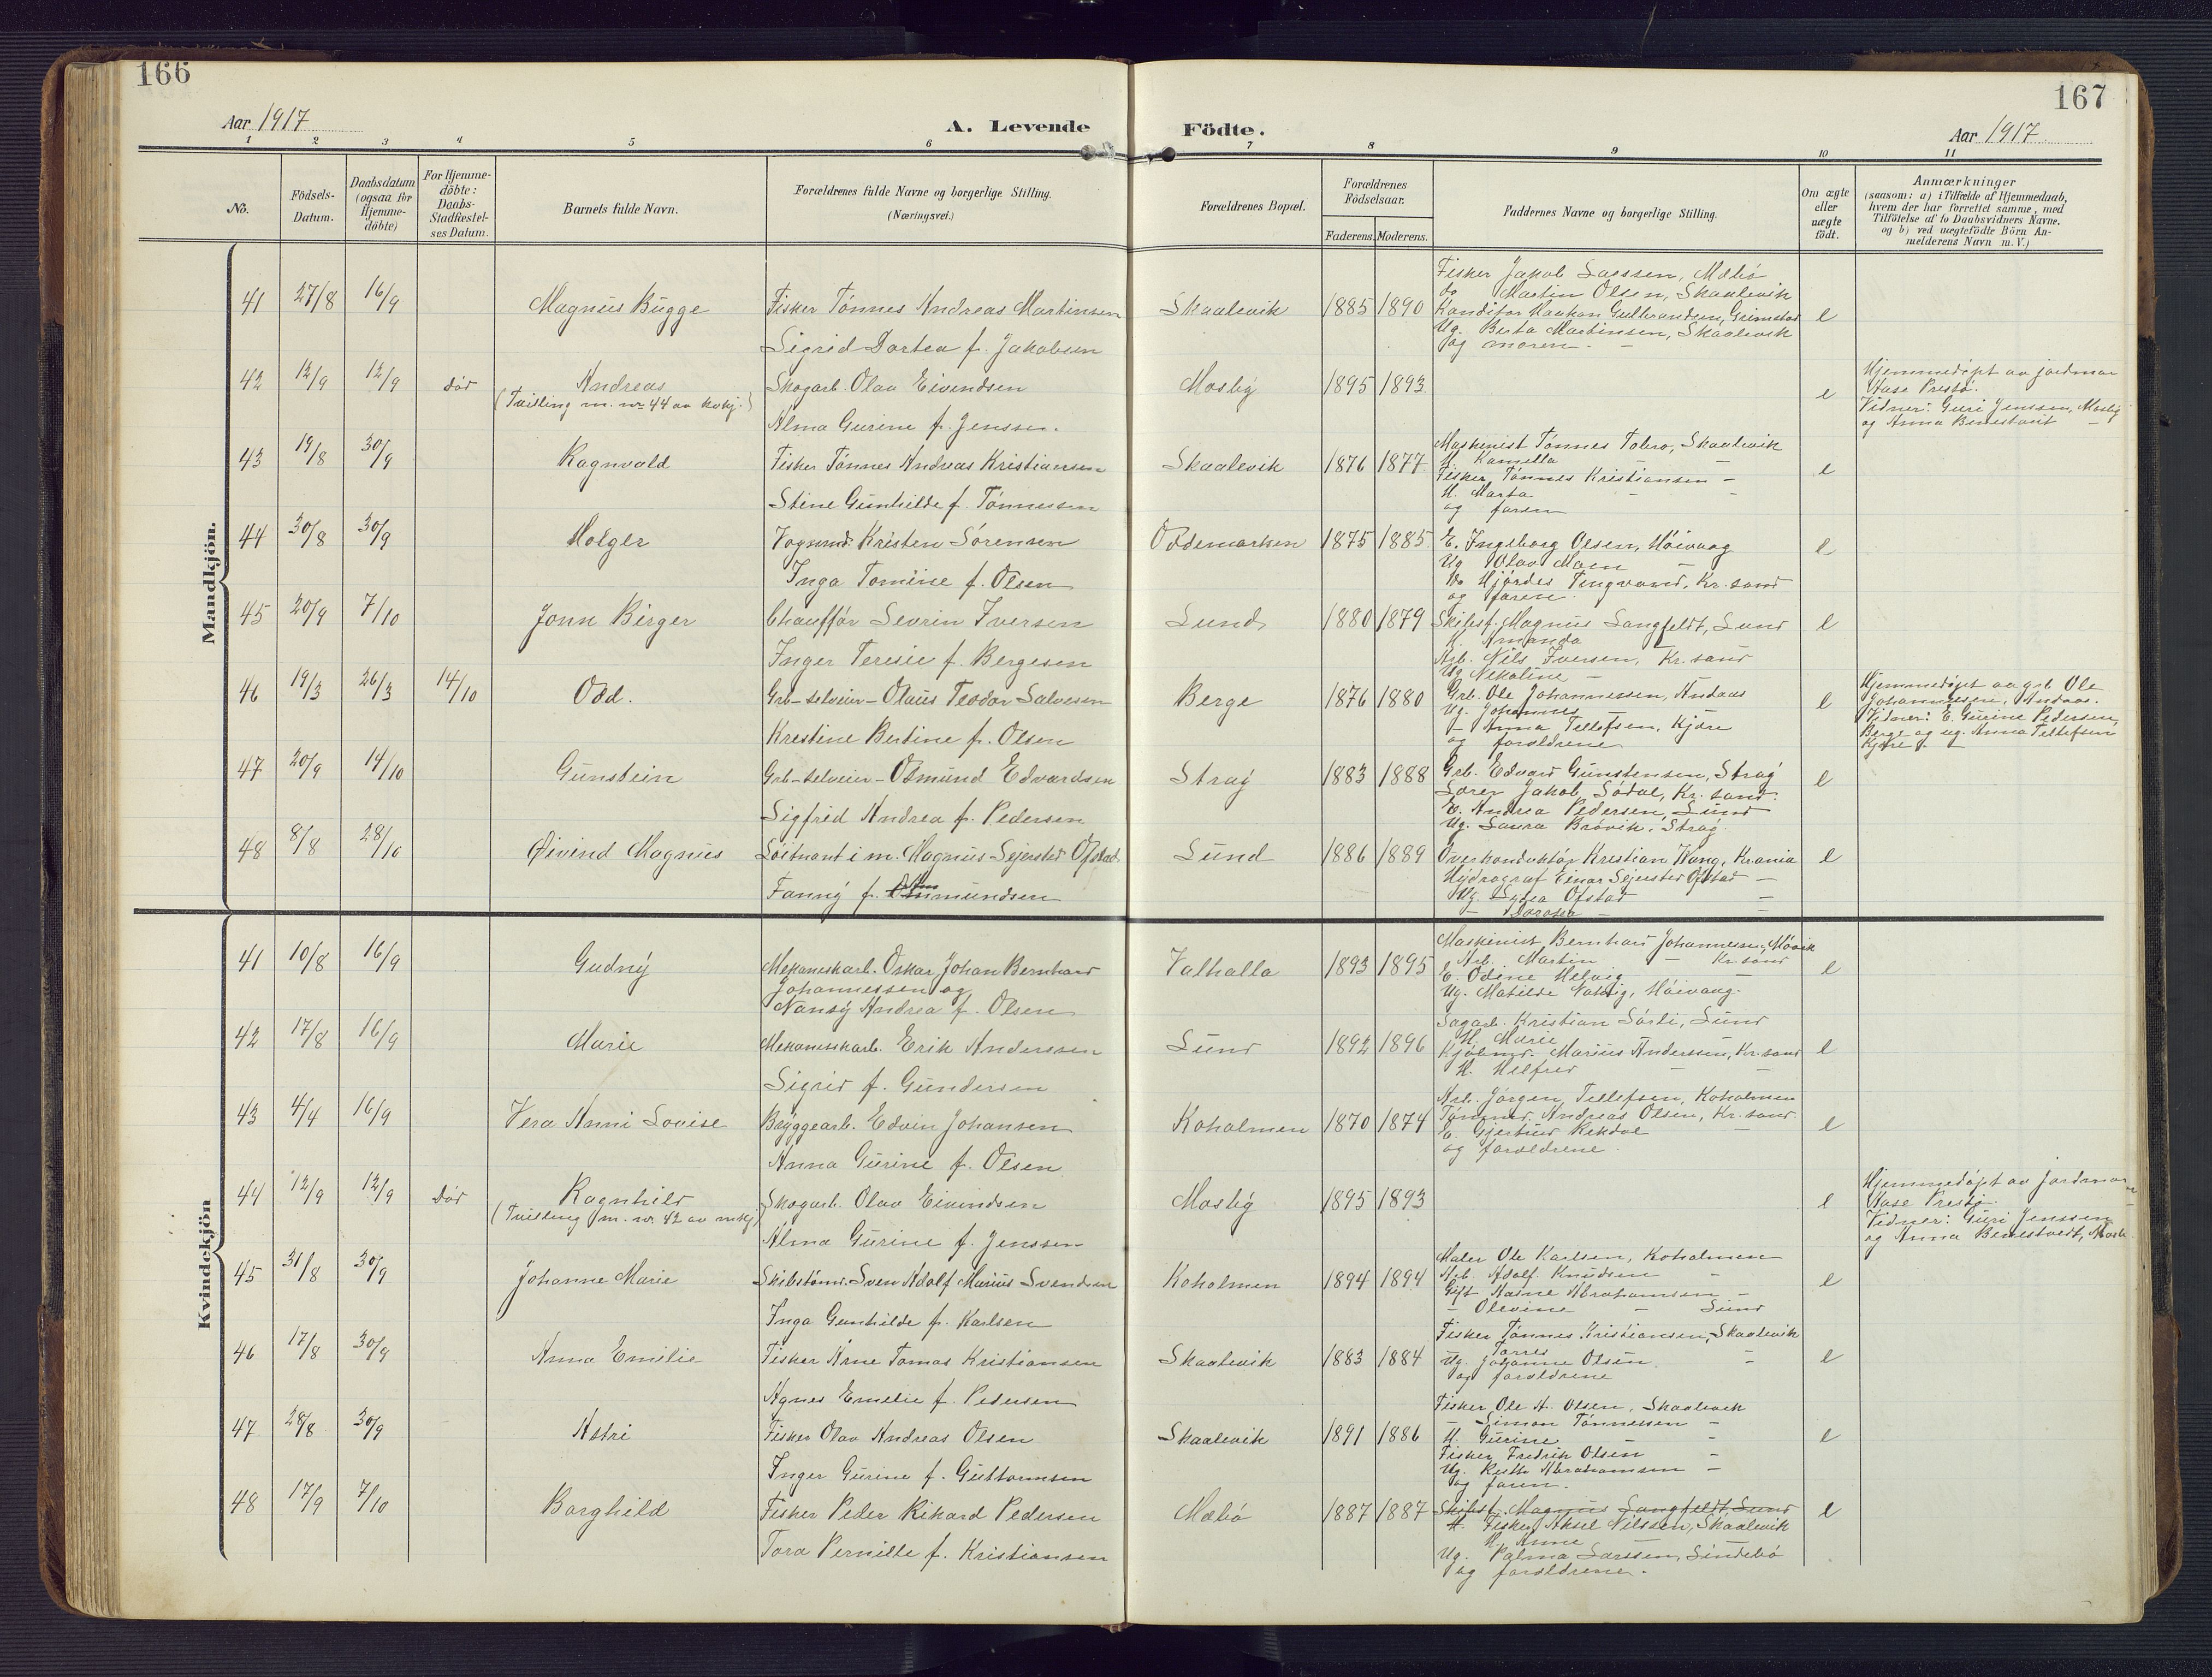 166
167
Aar 1917
A. Levende
Födte.
Aar 1917
1 2 3 4 5 6 7 8 9 10 11
No.
Födsels-
Datum.
Daabsdatum
(ogsaa for
Hjemme-
döbte)
For Hjemme-
döbte:
Daabs-
Stadfæstel-
ses Datum.
Barnets fulde Navn.
Forældrenes fulde Navne og borgerlige Stilling.
(Næringsvei.)
Forældrenes Bopæl.
Forældrenes
Födselsaar.
Faderens. Moderens.
Faddernes Navne og borgerlige Stilling.
Om ægte
eller
uægte
födt.
Anmærkninger
(saasom: a) i Tilfælde af Hjemmedaab,
hvem der har forrettet samme, med
Tilföielse af to Daabsvidners Navne.
og b) ved uægtefödte Börn An-
melderens Navn m. V.)
Mandkjön.
41 27/8 16/9 Magnus Bugge
Fisker Tönnes Andreas Martinsen
Sigrid Dortea f. Jakobsen
Skaalevik 1885 1890
Fisker Jakob Larssen, Mæbö
do Martin Olsen, Skaalevik
Konditor Haakon Gulbrandsen, Grimstad
Ug. Berta Martinsen, Skaalevik
og moren. -
e
42 12/9 12/9 död Andreas
(Tvilling m. nr 44 av kvkj.)
Skogarb. Olav Eivendsen
Alma Gurine f. Jenssen.
Mosby 1895 1893
e
Hjemmedöpt av jordmor
Aase Prestö.
Vidner: Guri Jenssen, Mosby
og Anna Benestvedt -
43 19/8 30/9 Ragnvald
Fisker Tönnes Andreas Kristiansen
Stine Gunhilde f. Tönnessen
Skaalevik 1876 1877
Maskinist Tönnes Tobro, Skaalevik
H. Kamilla - -
Fisker Tönnes Kristiansen -
H. Marta - -
og faren
e
44 30/8 30/9 Holger
Vognmd. Kristen Sörensen
Inga Tomine f. Olsen
Oddemarken 1875 1885
E. Ingeborg Olsen, Höivaag
Ug Olav Moen -
do Hjördes Tingvand, Kr.sand
og faren.
e
45 20/9 7/10 Jonn Birger
Chaufför Sevrin Iversen
Inger Teresie f. Bergesen
Lund 1880 1879
Skibsf. Magnus Langfeldt, Lund
H. Amanda -
Arb. Nils Iversen, Kr.sand
Ug Nikoline - -
e
46 19/3 26/3 14/10 Odd.
Grb-selveier-Olaus Teodor Salvesen
Kristine Bertine f. Olsen
Berge 1876 1880
Grb. Ole Johannessen, Andaas
Ug. Johannes - -
- Anna Tellefsen, Kjöre
og foreldrene
e
Hjemmedöpt av grb. Ole
Johannessen, Andaas.
Vidner: E. Gurine Pedersen,
Berge og ug. Anna Tellefsen
Kjöre. -
47 20/9 14/10 Gunstein
Grb-selveier-Osmund Edvardsen
Sigfrid Andrea f. Pedersen
Stray 1883 1888
Grb. Edvard Gunstensen, Stray
Lærer Jakob Södal, Kr.sand.
E. Andrea Pedersen, Lund
Ug. Laura Brövik, Stray.
e
48 8/8 28/10 Öivind Magnus
Löitnant i m. Magnus Sejersted Ofstad
Fanny f. Osmundsen
Lund 1886 1889
Overkonduktör Kristian Wang, Kr.ania
Hydrograf Einar Sejersted Ofstad -
Ug. Lydia Ofstad -
- Dorotea - -
e
Kvindekjön
41 10/8 16/9 Gudny
Mekaneskarb. Oskar Johan Bernhard
Johannessen og
Nansy Andrea f. Olsen
Valhalla 1893 1895
Maskinist Bernhard Johannessen, Mövik
Arb. Martin - Kr.sand
E. Odine Helvig -
Ug. Matilde Natvig, Höivaag.
e
42 17/8 16/9 Marie
Mekaneskarb. Erik Anderssen
Sigrid f. Gundersen
Lund 1892 1896
Sagarb. Kristian Sörli, Lund
H. Marie - -
Kjöbmd. Marius Anderssen, Kr.sand
H. Hilfred - -
e
43 4/4 16/9 Vera Anni Lovise
Bryggearb. Edvin Johansen
Anna Gurine f. Olsen
Koholmen 1870 1874
Arb. Jörgen Tellefsen, Koholmen
Tömmerd. Andreas Olsen, Kr.sand.
E. Gjertrud Rekdal -
og foreldrene.
e
44 12/9 12/9 död Ragnhild
(Tvilling m. nr. 42 av mkj)
Skogarb. Olav Eivindsen
Alma Gurine f. Jenssen
Mosby 1895 1893
e
Hjemmedöpt av jordmor
Aase Prestö. -
Vidner: Guri Jenssen
og Anna Benestvedt, Mosb.
45 31/8 30/9 Johanne Marie
Skibstömr. Sven Adolf Marius Svendsen
Inga Gunhilde f. Karlsen
Koholmen 1894 1894
Maler Ole Karlsen, Koholmen
Arb. Adolf Knudsen -
Gift Kaine Abrahamsen -
- Olevine - Lund
e
46 17/8 30/9 Anna Emilie
Fisker Arne Tomas Kristiansen
Agnes Emelie f. Pedersen
Skaalevik 1883 1884
Fisker Tönnes Kristiansen, Skaalevik
- Torres -
Ug. Johanne Olsen. -
og foreldrene
e
47 28/8 30/9 Astri
Fisker Olav Andreas Olsen
Inger Gurine f. Guttormsen
Skaalevik 1891 1886
Fisker Ole A. Olsen, Skaalevik
- Simon Tönnessen -
H. Gurine - -
Fisker Fredrik Olsen -
Ug. Ruth Abrahamsen -
og faren.
e
48 17/9 7/10 Borghild
Fisker Peder Rikard Pedersen
Tora Pernille f. Kristiansen
Mæbö 1887 1887
Skibsf. Magnus Langfeldt, Lund
H. Fisker Aksel Nilssen, Skaalevik
H. Anne -
Ug. Palma Larssen, Lindebö
og foreldrene.
e